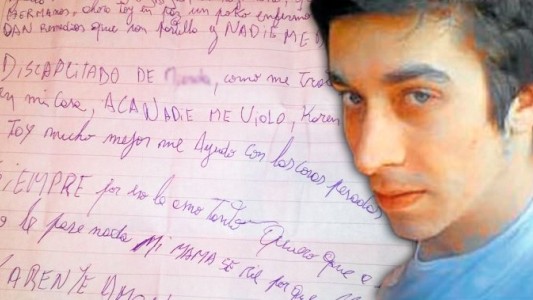 HERMANOS, ahora toy en Paz un poko enfermo
DAN Remedios que son pastilla y NADIE ME D
DISCAPCITADO DE, como me Trata
en mi Casa, ACA NADIE ME VIOLO, Karen
TOY mucho mejor me Ayudo con las cosas pesadas
SIEMPRE por no la amo Tanto Quiero que
le pase nada Mi MAMA SE porque
KARENTE AMO